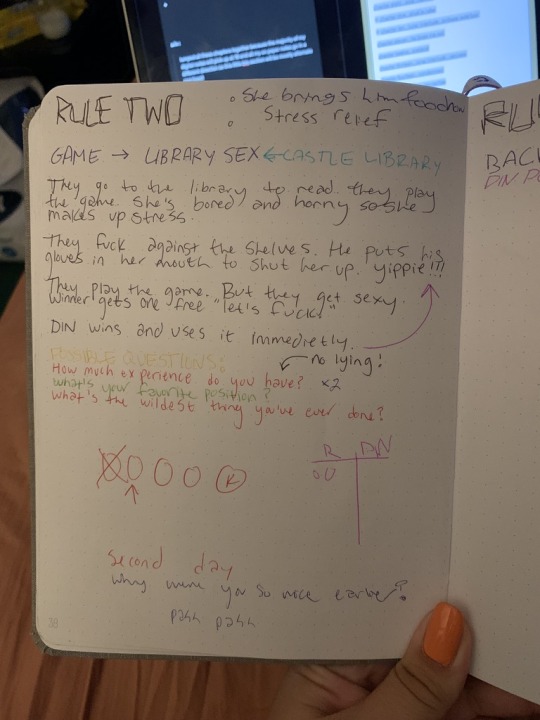 RULE TWO
• She brings him food
• Stress relief
GAME → LIBRARY SEX ← CASTLE LIBRARY
They go to the library to read. they play
the game. She's bored and horny so she
makes up stress.
They fuck against the shelves. He puts his
gloves in her mouth to shut her up. yippie!!!
They play the game. But they get sexy.
Winner gets one free "let's fuck!"
DIN wins and uses it immedietly.
POSSIBLE QUESTIONS:
no lying!
How much experience do you have? x2
what's your favorite position?
what's the wildest thing you've ever done?
R DN
second day
why were you so nice earlier?
30
RU
BAC
DIN PO